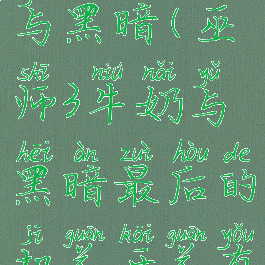 与黑暗(亚
shī niú nǎi yǔ
师3牛奶与
hēi àn zuì hòu de
黑暗最后的
jī guān kāi guān yǒu